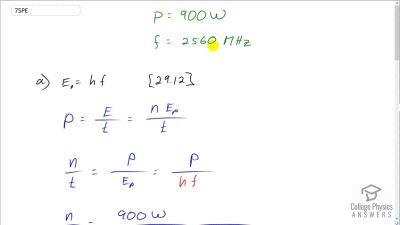 75PE
P = 900 W
f = 2560 MHz
a) Eₚ = hf [29.12]
P = E/t = n Eₚ/t
n/t = P/Eₚ = P/hf
n 900 W
College Physics
ANSWERS